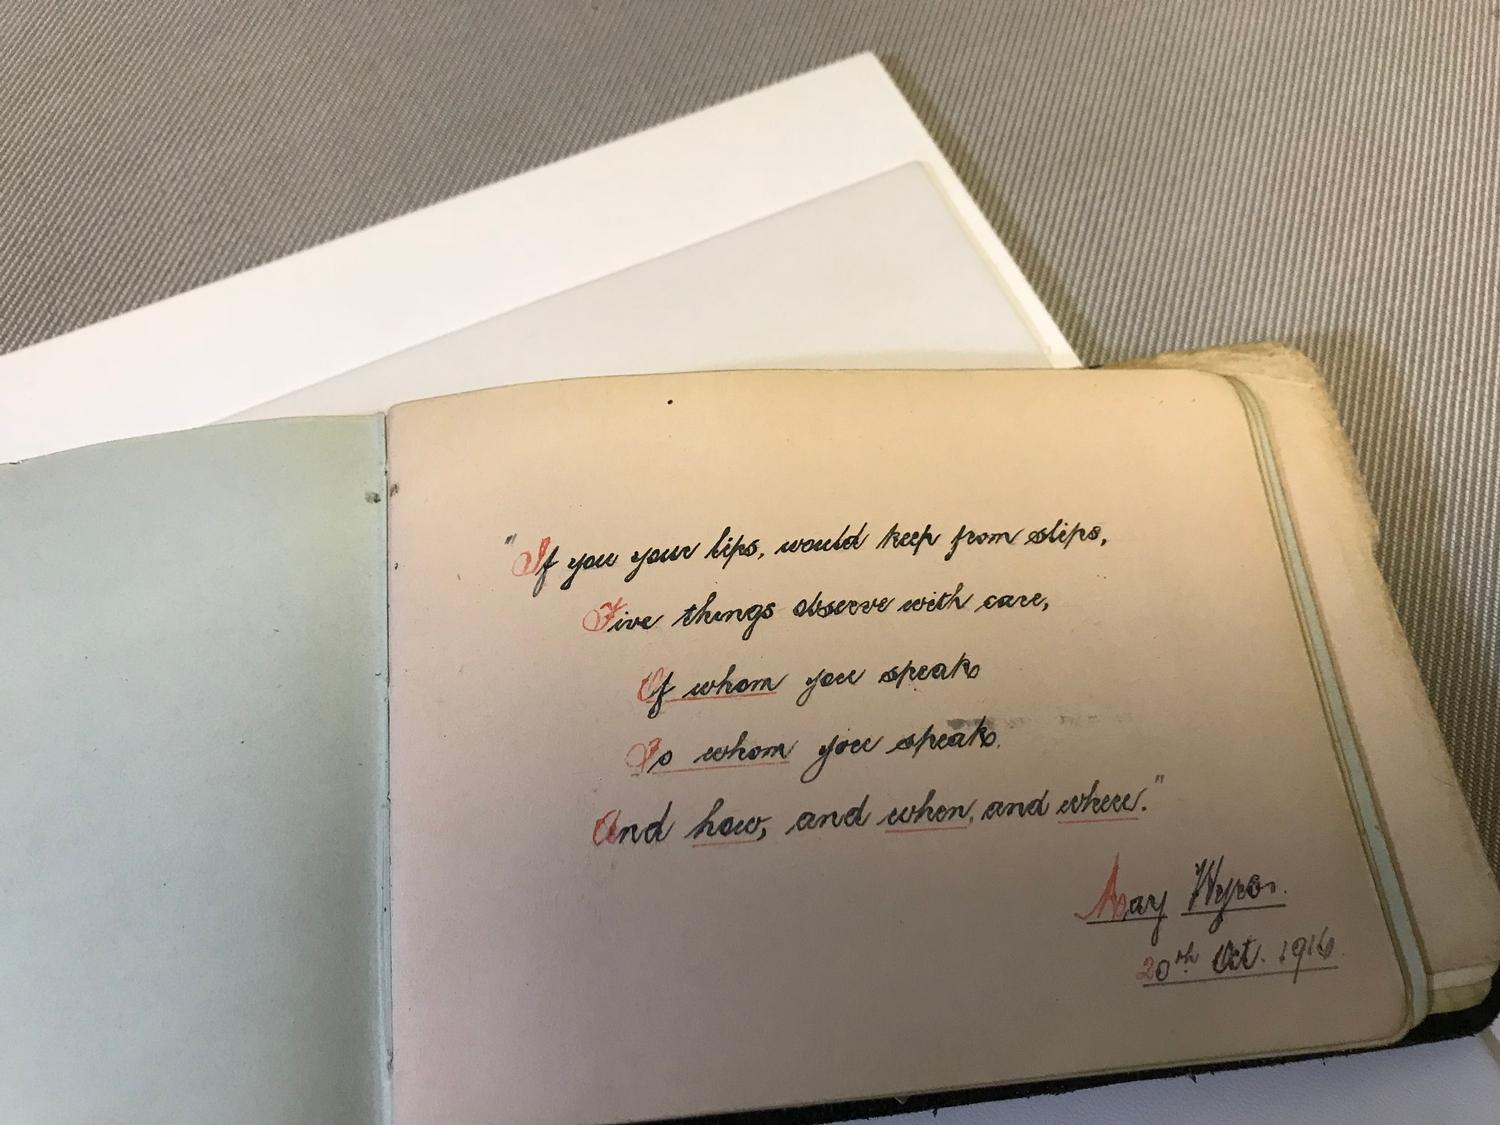 "If you your lips, would keep from slips,
Five things observe with care,
Of whom you speak
To whom you speak.
And how, and when, and where."
May
20th Oct. 1916